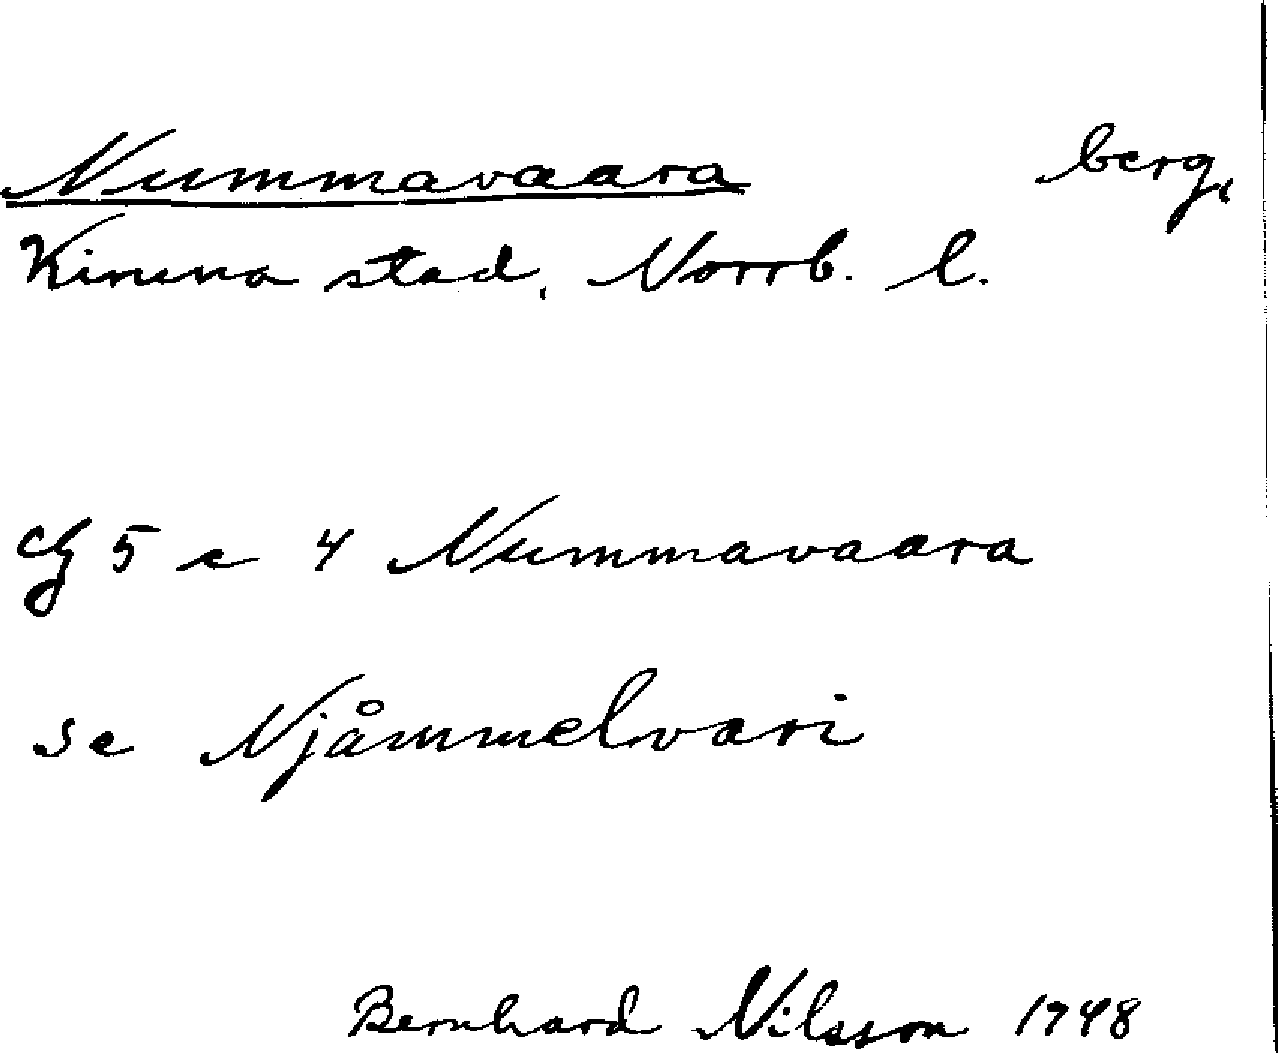 Nummavaara berg,
Kiruna stad, Norrb. l.
Cg 5 e 4 Nummavaara
se Njåmmelvari
Bernhard Nilsson 1948